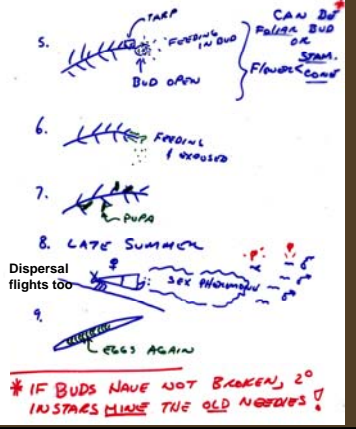 TARP
5.
FEEDING
IN BUD
BUD OPEN
CAN BE
FOLIAR BUD
OR
STAM.
FLOWER < CONE
6.
FEEDING
EXPOSED
7.
PUPA
8. LATE SUMMER
Dispersal
flights too
♀
SEX PHEROMONE
P
P
♂
♂
♂
9.
EGGS AGAIN
* IF BUDS HAVE NOT BROKEN, 2°
INSTARS MINE THE OLD NEEDLES!